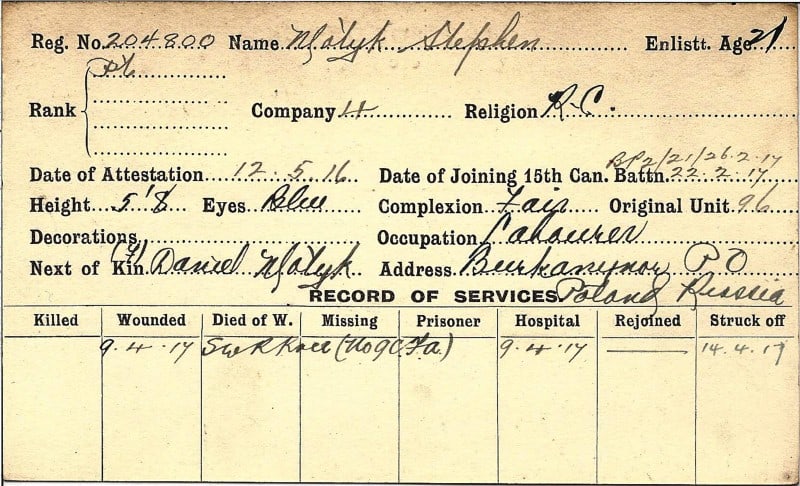 Reg. No. 204800 Name Motyk Stephen Enlistt. Age 21
Pte
Rank Company 4 Religion R.C.
BP2/21/26.2.17
Date of Attestation 12.5.16 Date of Joining 15th Can. Battn. 22.2.17
Height 5'8 Eyes Blue Complexion Fair Original Unit 96
Decorations Occupation Labourer
Next of Kin (F) Daniel Motyk Address P O
RECORD OF SERVICES Poland Russia
Killed Wounded Died of W. Missing Prisoner Hospital Rejoined Struck off
9.4.17 SW R Knee (No 9 C.F.a.) 9.4.17 14.4.17